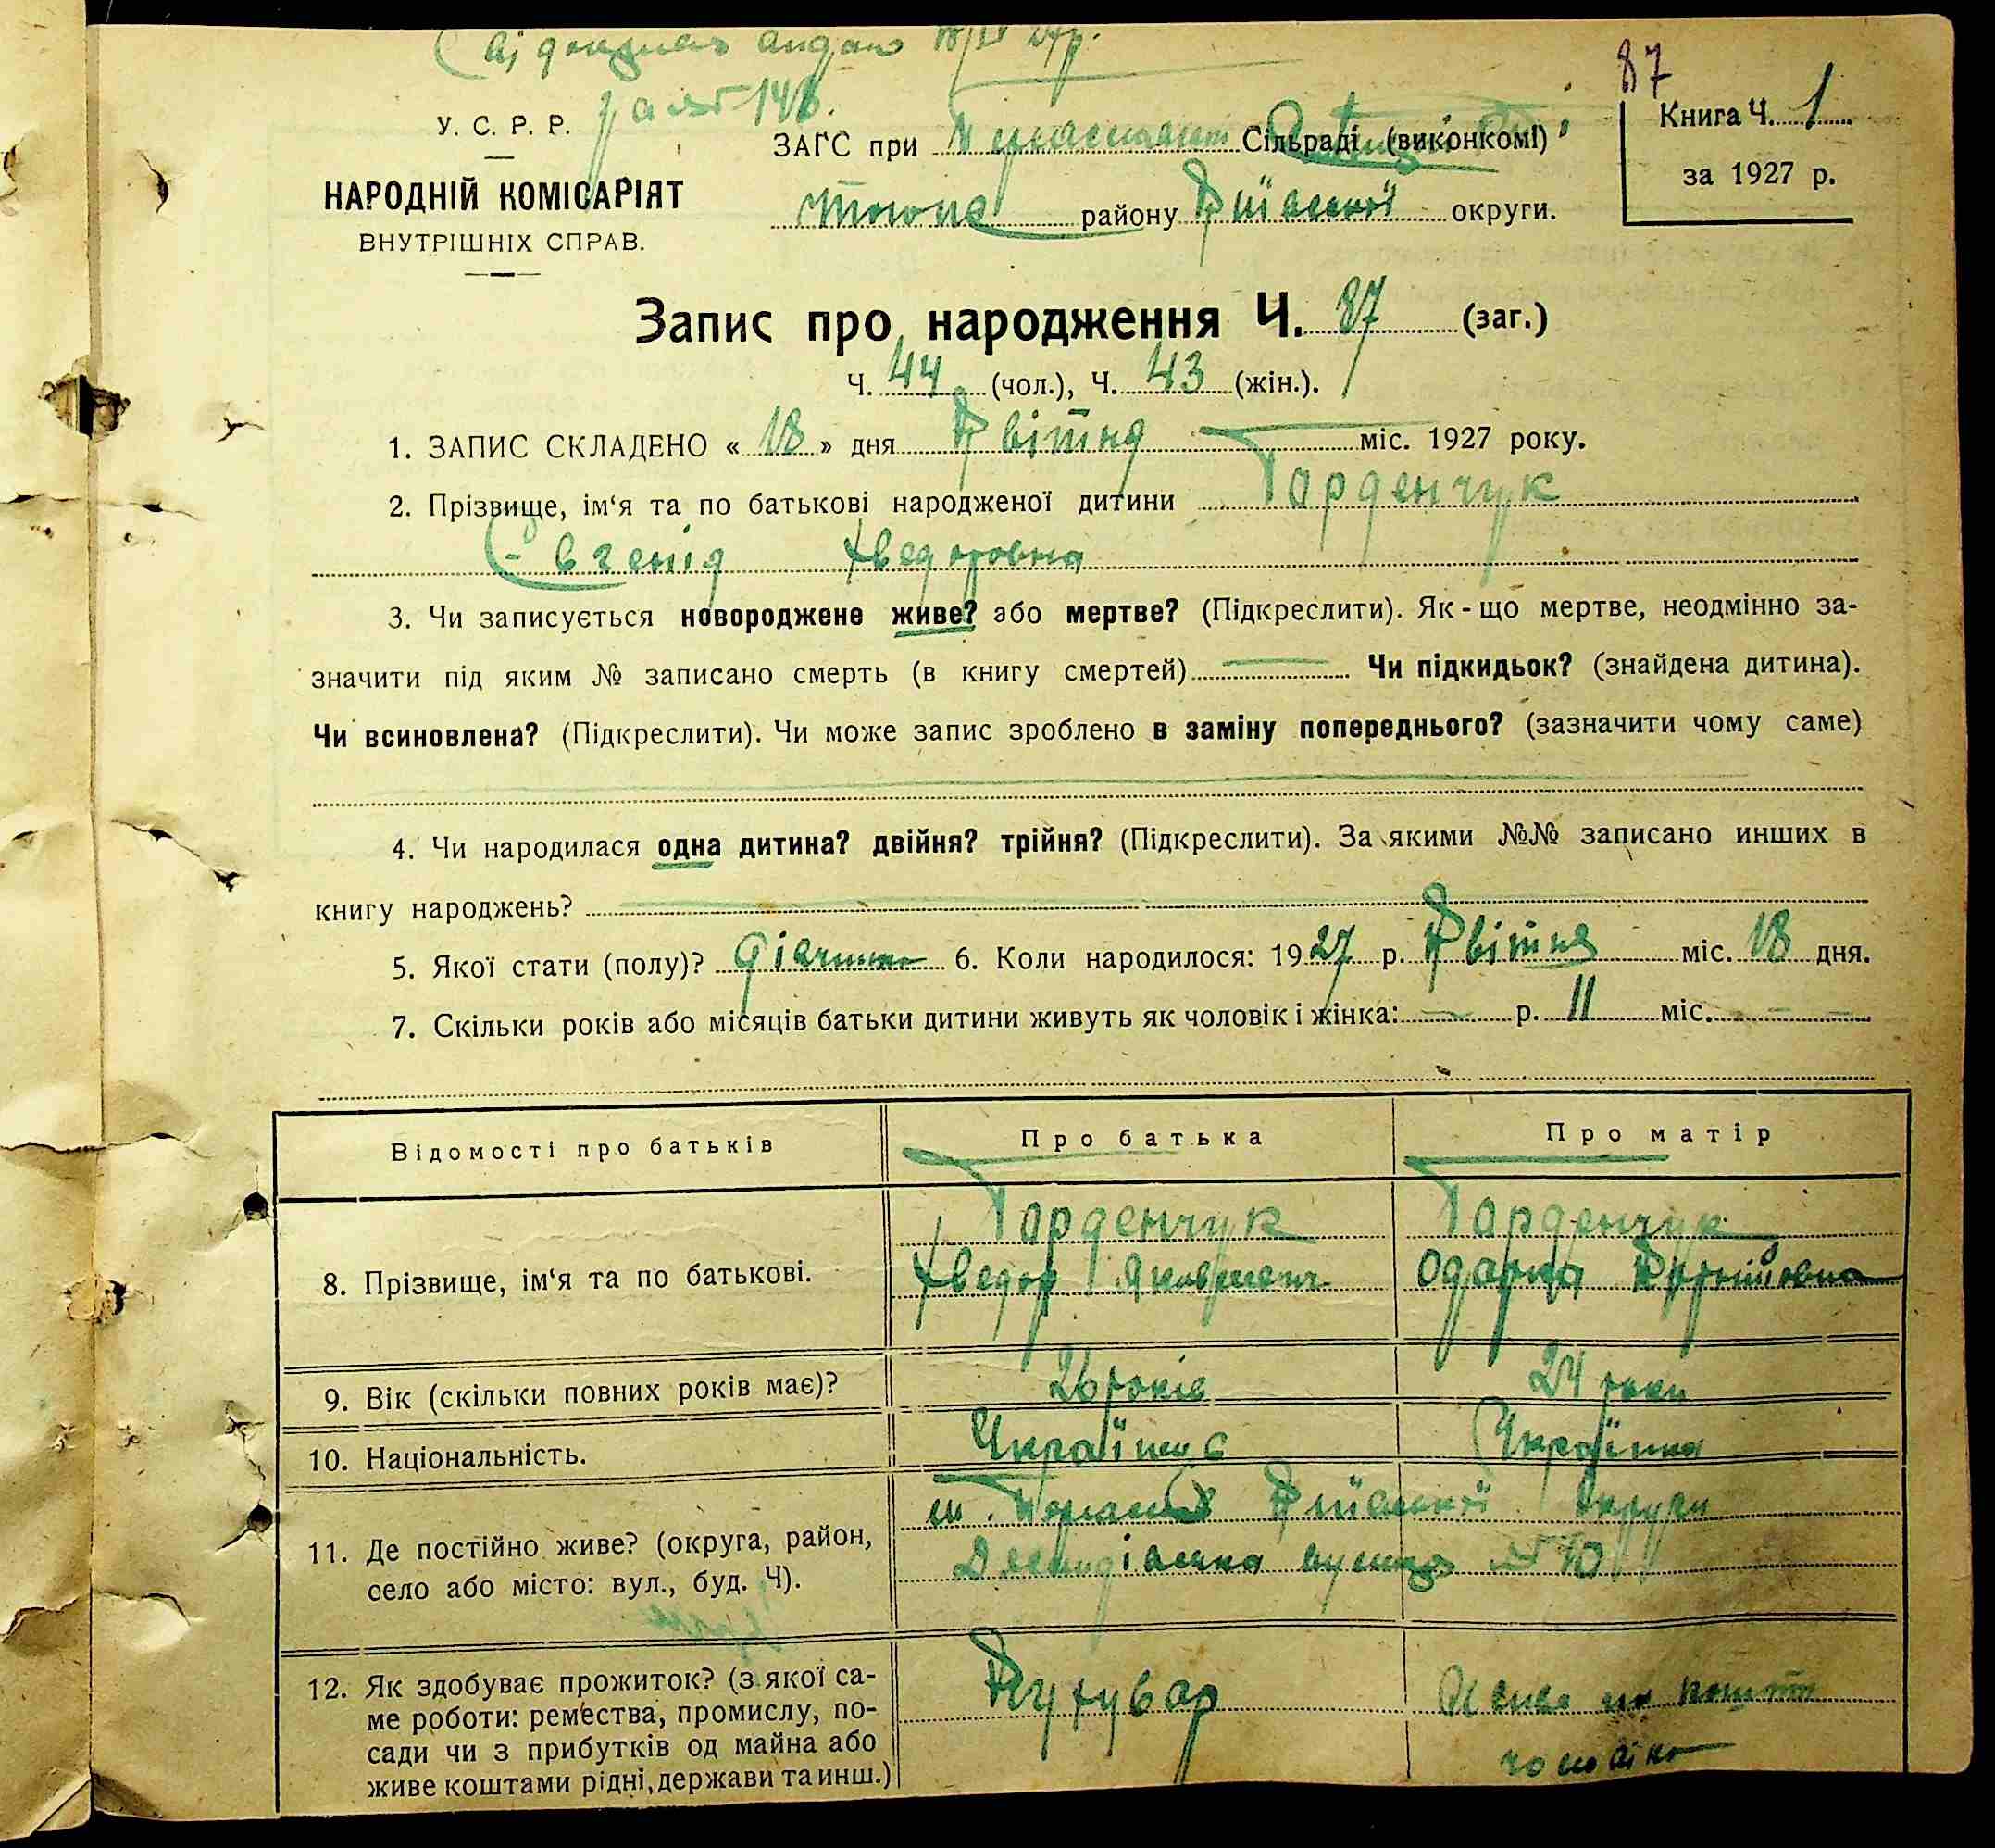 87
У. С. Р. Р.
за № 148.
ЗАГС при Сільраді (виконкомі)
Книга Ч. 1
НАРОДНІЙ КОМІСАРІЯТ
району Київської округи.
за 1927 р.
ВНУТРІШНІХ СПРАВ.
Запис про народження Ч. 87 (заг.)
Ч. 44 (чол.), Ч. 43 (жін.).
1. ЗАПИС СКЛАДЕНО « 18 » дня Квітня міс. 1927 року.
2. Прізвище, ім‘я та по батькові народженої дитини Горденчук
Євгенія Хведоровна
3. Чи записується новороджене живе? або мертве? (Підкреслити). Як-що мертве, неодмінно за-
значити під яким № записано смерть (в книгу смертей) Чи підкидьок? (знайдена дитина).
Чи всиновлена? (Підкреслити). Чи може запис зроблено в заміну попереднього? (зазначити чому саме)
4. Чи народилася одна дитина? двійня? трійня? (Підкреслити). За якими №№ записано инших в
книгу народжень?
5. Якої стати (полу)? дівчинка 6. Коли народилося: 1927 р. Квітня міс. 18 дня.
7. Скільки років або місяців батьки дитини живуть як чоловік і жінка: — р. 11 міс.
Відомості про батьків Про батька Про матір
Горденчук Горденчук
8. Прізвище, ім‘я та по батькові. Хведор Якович Одарка
9. Вік (скільки повних років має)? 26 років 24 роки
10. Національність. Українець Українка
м. Київської округи
11. Де постійно живе? (округа, район,
вулиця № 10
село або місто: вул., буд. Ч).
12. Як здобуває прожиток? (з якої са-
ме роботи: рем‘ества, промислу, по-
сади чи з прибутків од майна або
живе коштами рідні, держави та инш.)
Кухувар
Живе на кошти
чоловіка